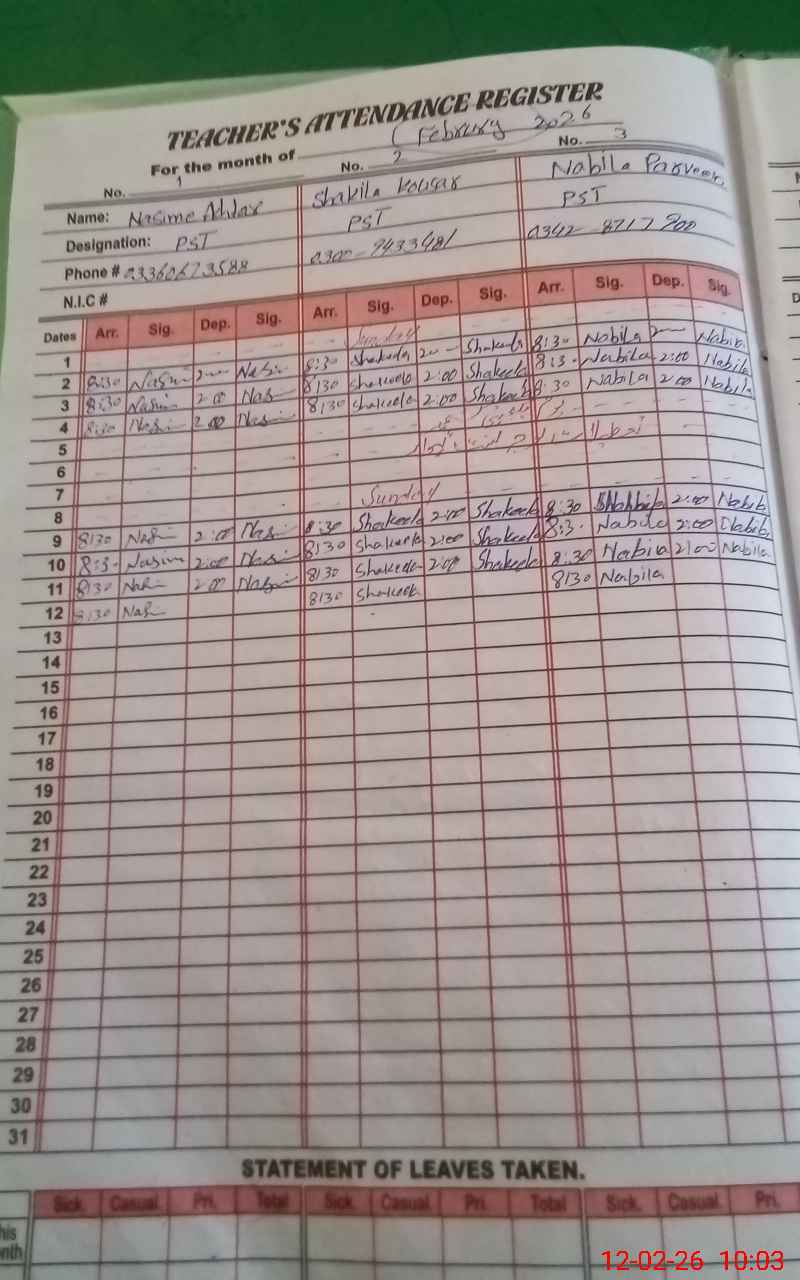 TEACHER'S ATTENDANCE REGISTER
For the month of (February 2026
No. 1 No. 2 No. 3
Name: Nasime Akhtar Shakila Kousar Nabila Parveen
Designation: PST PST PST
Phone # 03360673588 0300-9433481 0342-8717900
N.I.C #
Dates Arr. Sig. Dep. Sig. Arr. Sig. Dep. Sig. Arr. Sig. Dep. Sig.
1 Sunday
2 8:30 Nasim 2 Nasi 8:30 Shakeela 2 Shakeela 8:30 Nabila 2 Nabila
3 8:30 Nasim 2:00 Nasi 8:30 Shakeela 2:00 Shakeela 8:3- Nabila 2:00 Nabila
4 8:30 Nasi 2:00 Nasi 8:30 Shakeela 2:00 Shakeela 8:30 Nabila 2:00 Nabila
5
6
7
8 Sunday
9 8:30 Nasi 2:00 Nasi 8:30 Shakeela 2:00 Shakeela 8:30 Nabila 2:00 Nabila
10 8:3- Nasim 2:00 Nasi 8:30 Shakeela 2:00 Shakeela 8:3- Nabila 2:00 Nabila
11 8:30 Nasi 2:00 Nasi 8:30 Shakeela 2:00 Shakeela 8:30 Nabila 2:00 Nabila
12 8:30 Nasi 8:30 Shakeela 8:30 Nabila
13
14
15
16
17
18
19
20
21
22
23
24
25
26
27
28
29
30
31
STATEMENT OF LEAVES TAKEN.
Sick. Casual. Pri. Total Sick. Casual. Pri. Total Sick. Casual. Pri.
12-02-26 10:03